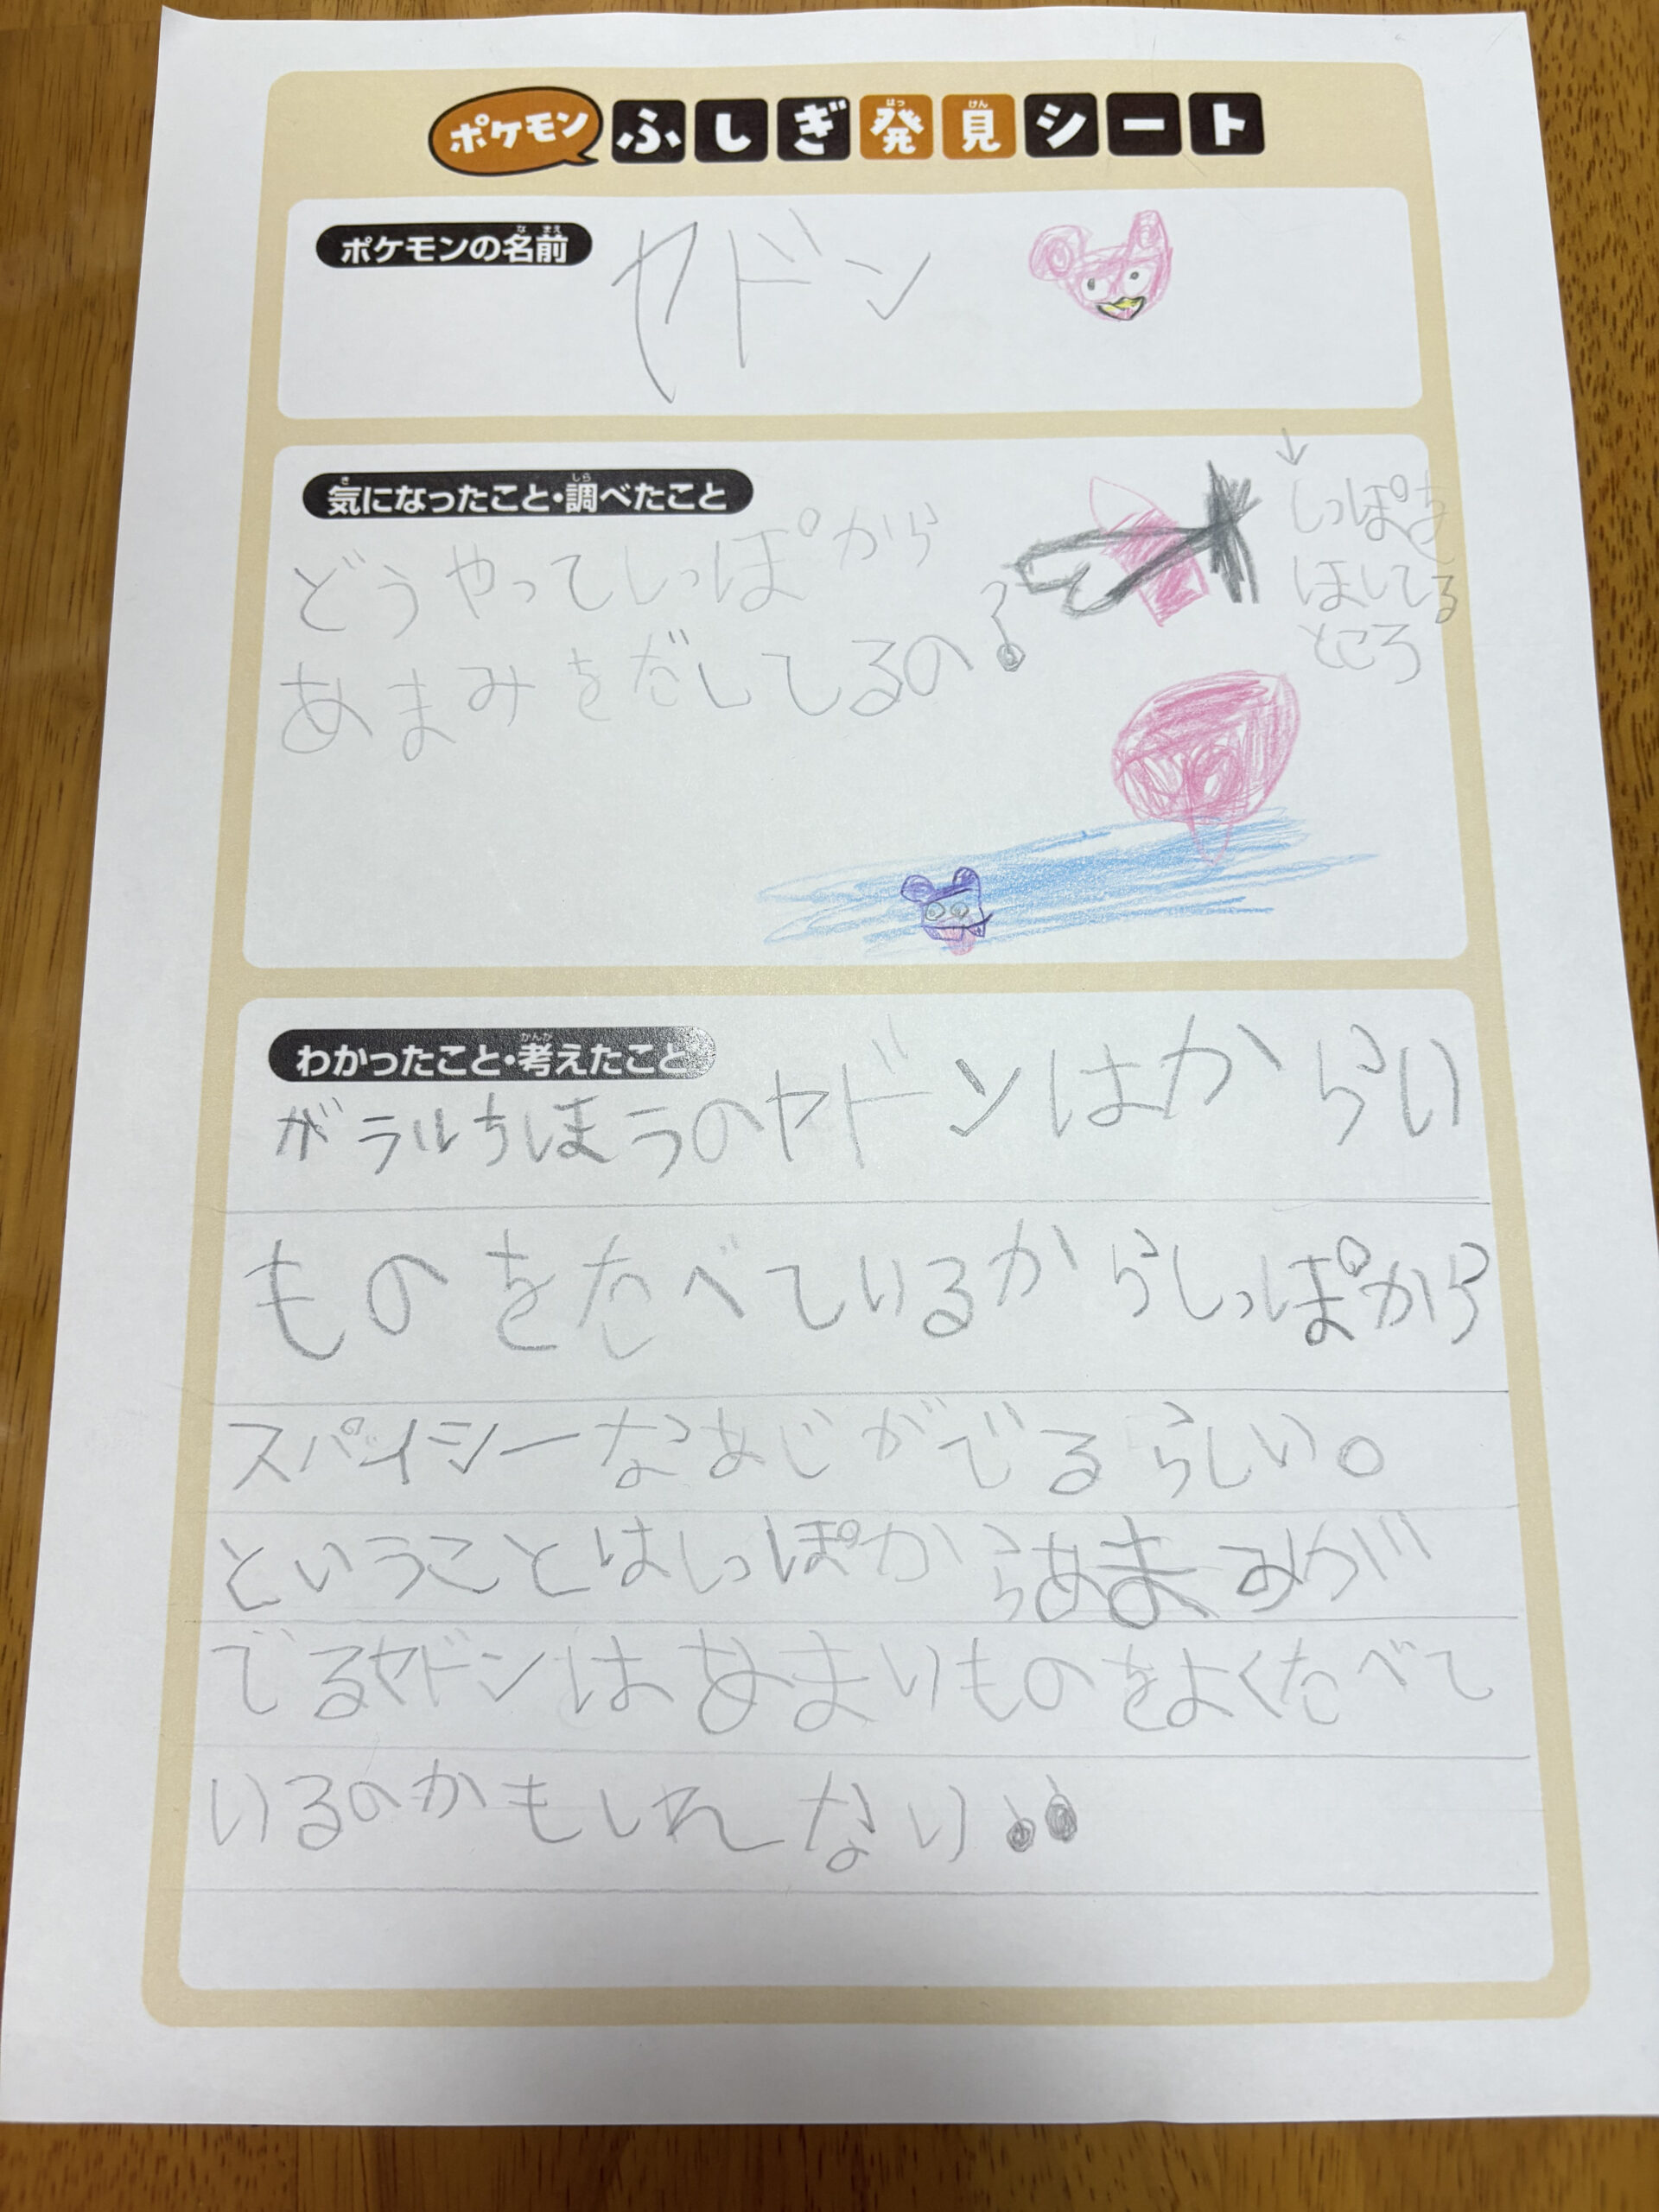 ポケモンふしぎ発見シート
ポケモンの名前
ヤドン
気になったこと・調べたこと
どうやってしっぽから
あまみをだしてるの?
↓
しっぽを
ほしてる
ところ
わかったこと・考えたこと
ガラルちほうのヤドンはからい
ものをたべているからしっぽから
スパイシーなあじがでるらしい。
ということはしっぽからあまみが
でるヤドンはあまいものをよくたべて
いるのかもしれない!!